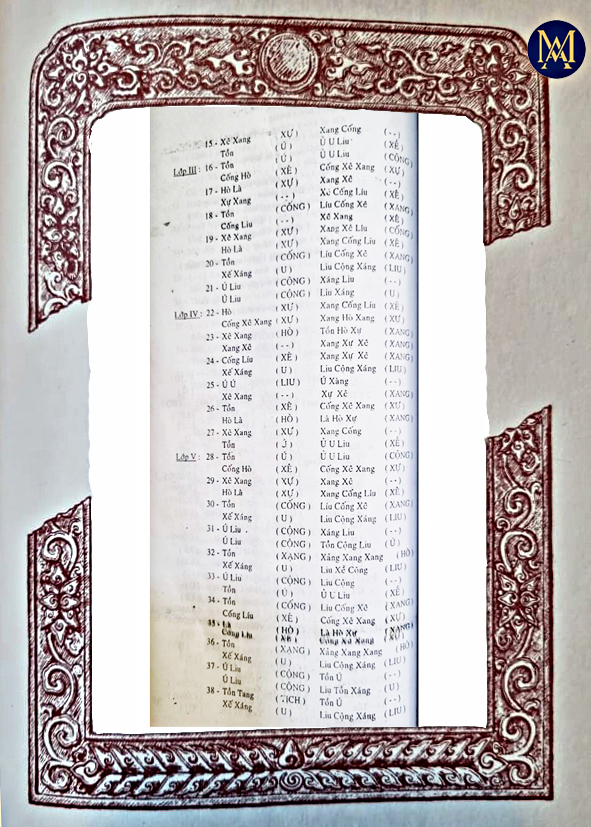 MA
15 - Xê Xang (XỰ) Xang Cống (--)
Tồn (Ú) Ù U Liu (XÊ)
Lớp III : 16 - Tồn (Ú) Ù U Liu (CỘNG)
Cống Hò (XÊ) Cống Xê Xang (XỰ)
17 - Hò Là (XỰ) Xang Xê (--)
Xự Xang (--) Xê Cống Liu (XÊ)
18 - Tồn (CỐNG) Liu Cống Xê (XANG)
Cống Liu (--) Xê Xang (XÊ)
19 - Xê Xang (XỰ) Xang Xê Liu (CỐNG)
Hò Là (XỰ) Xang Cống Liu (XÊ)
20 - Tồn (CỐNG) Liu Cống Xê (XANG)
Xế Xáng (U) Liu Cộng Xáng (LIU)
21 - Ú Liu (CỘNG) Xáng Liu (--)
Ú Liu (CỘNG) Liu Xáng (U)
Lớp IV : 22 - Hò (XỰ) Xang Cống Liu (XÊ)
Cống Xê Xang (XỰ) Xang Hò Xang (XỰ)
23 - Xê Xang (HÒ) Tồn Hò Xự (XANG)
Xang Xê (--) Xang Xự Xê (XANG)
24 - Cống Liu (XÊ) Xang Xự Xê (XANG)
Xế Xáng (U) Liu Cộng Xáng (LIU)
25 - Ú Ú (LIU) Ú Xàng (--)
Xê Xang (--) Xự Xê (XANG)
26 - Tồn (XÊ) Cống Xê Xang (XỰ)
Hò Là (HÒ) Là Hò Xự (XANG)
27 - Xê Xang (XỰ) Xang Cống (--)
Tồn (Ú) Ù U Liu (XÊ)
Lớp V : 28 - Tồn (Ú) Ù U Liu (CỘNG)
Cống Hò (XÊ) Cống Xê Xang (XỰ)
29 - Xê Xang (XỰ) Xang Xê (--)
Hò Là (XỰ) Xang Cống Liu (XÊ)
30 - Tồn (CỐNG) Liu Cống Xê (XANG)
Xế Xáng (U) Liu Cộng Xáng (LIU)
31 - Ú Liu (CỘNG) Xáng Liu (--)
Ú Liu (CỘNG) Tồn Cộng Liu (Ú)
32 - Tồn (XẠNG) Xảng Xang Xang (HÒ)
Xế Xáng (U) Liu Xề Cộng (LIU)
33 - Ú Liu (CỘNG) Liu Cộng (--)
Tồn (Ú) Ù U Liu (XÊ)
34 - Tồn (CỐNG) Liu Cống Xê (XANG)
Cống Liu (XÊ) Cống Xê Xang (XỰ)
35 - Là (HÒ) Là Hò Xự (XANG)
Cống Liu (XÊ) Cống Xê Xang (XỰ)
36 - Tồn (XẠNG) Xảng Xang Xang (HÒ)
Xế Xáng (U) Liu Cộng Xáng (LIU)
37 - Ú Liu (CỘNG) Tồn Ú (--)
Ú Liu (CỘNG) Liu Tồn Xáng (U)
38 - Tồn Tang (TỊCH) Tồn Ú (--)
Xế Xáng (U) Liu Cộng Xáng (LIU)